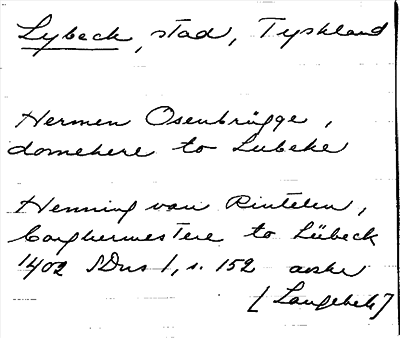 Lybeck, stad, Tyskland
Hermen Osenbrügge,
domehere to Lubeke
Henning van Rintelen,
borghermestere to Lübeck
1402 SDns 1, s. 152 avskr
[Langebek]